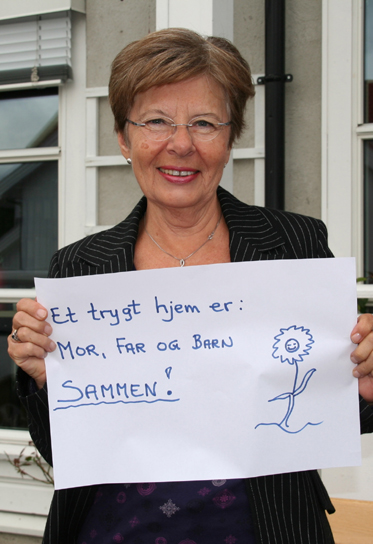 Et trygt hjem er:
MOR, FAR OG BARN
SAMMEN!